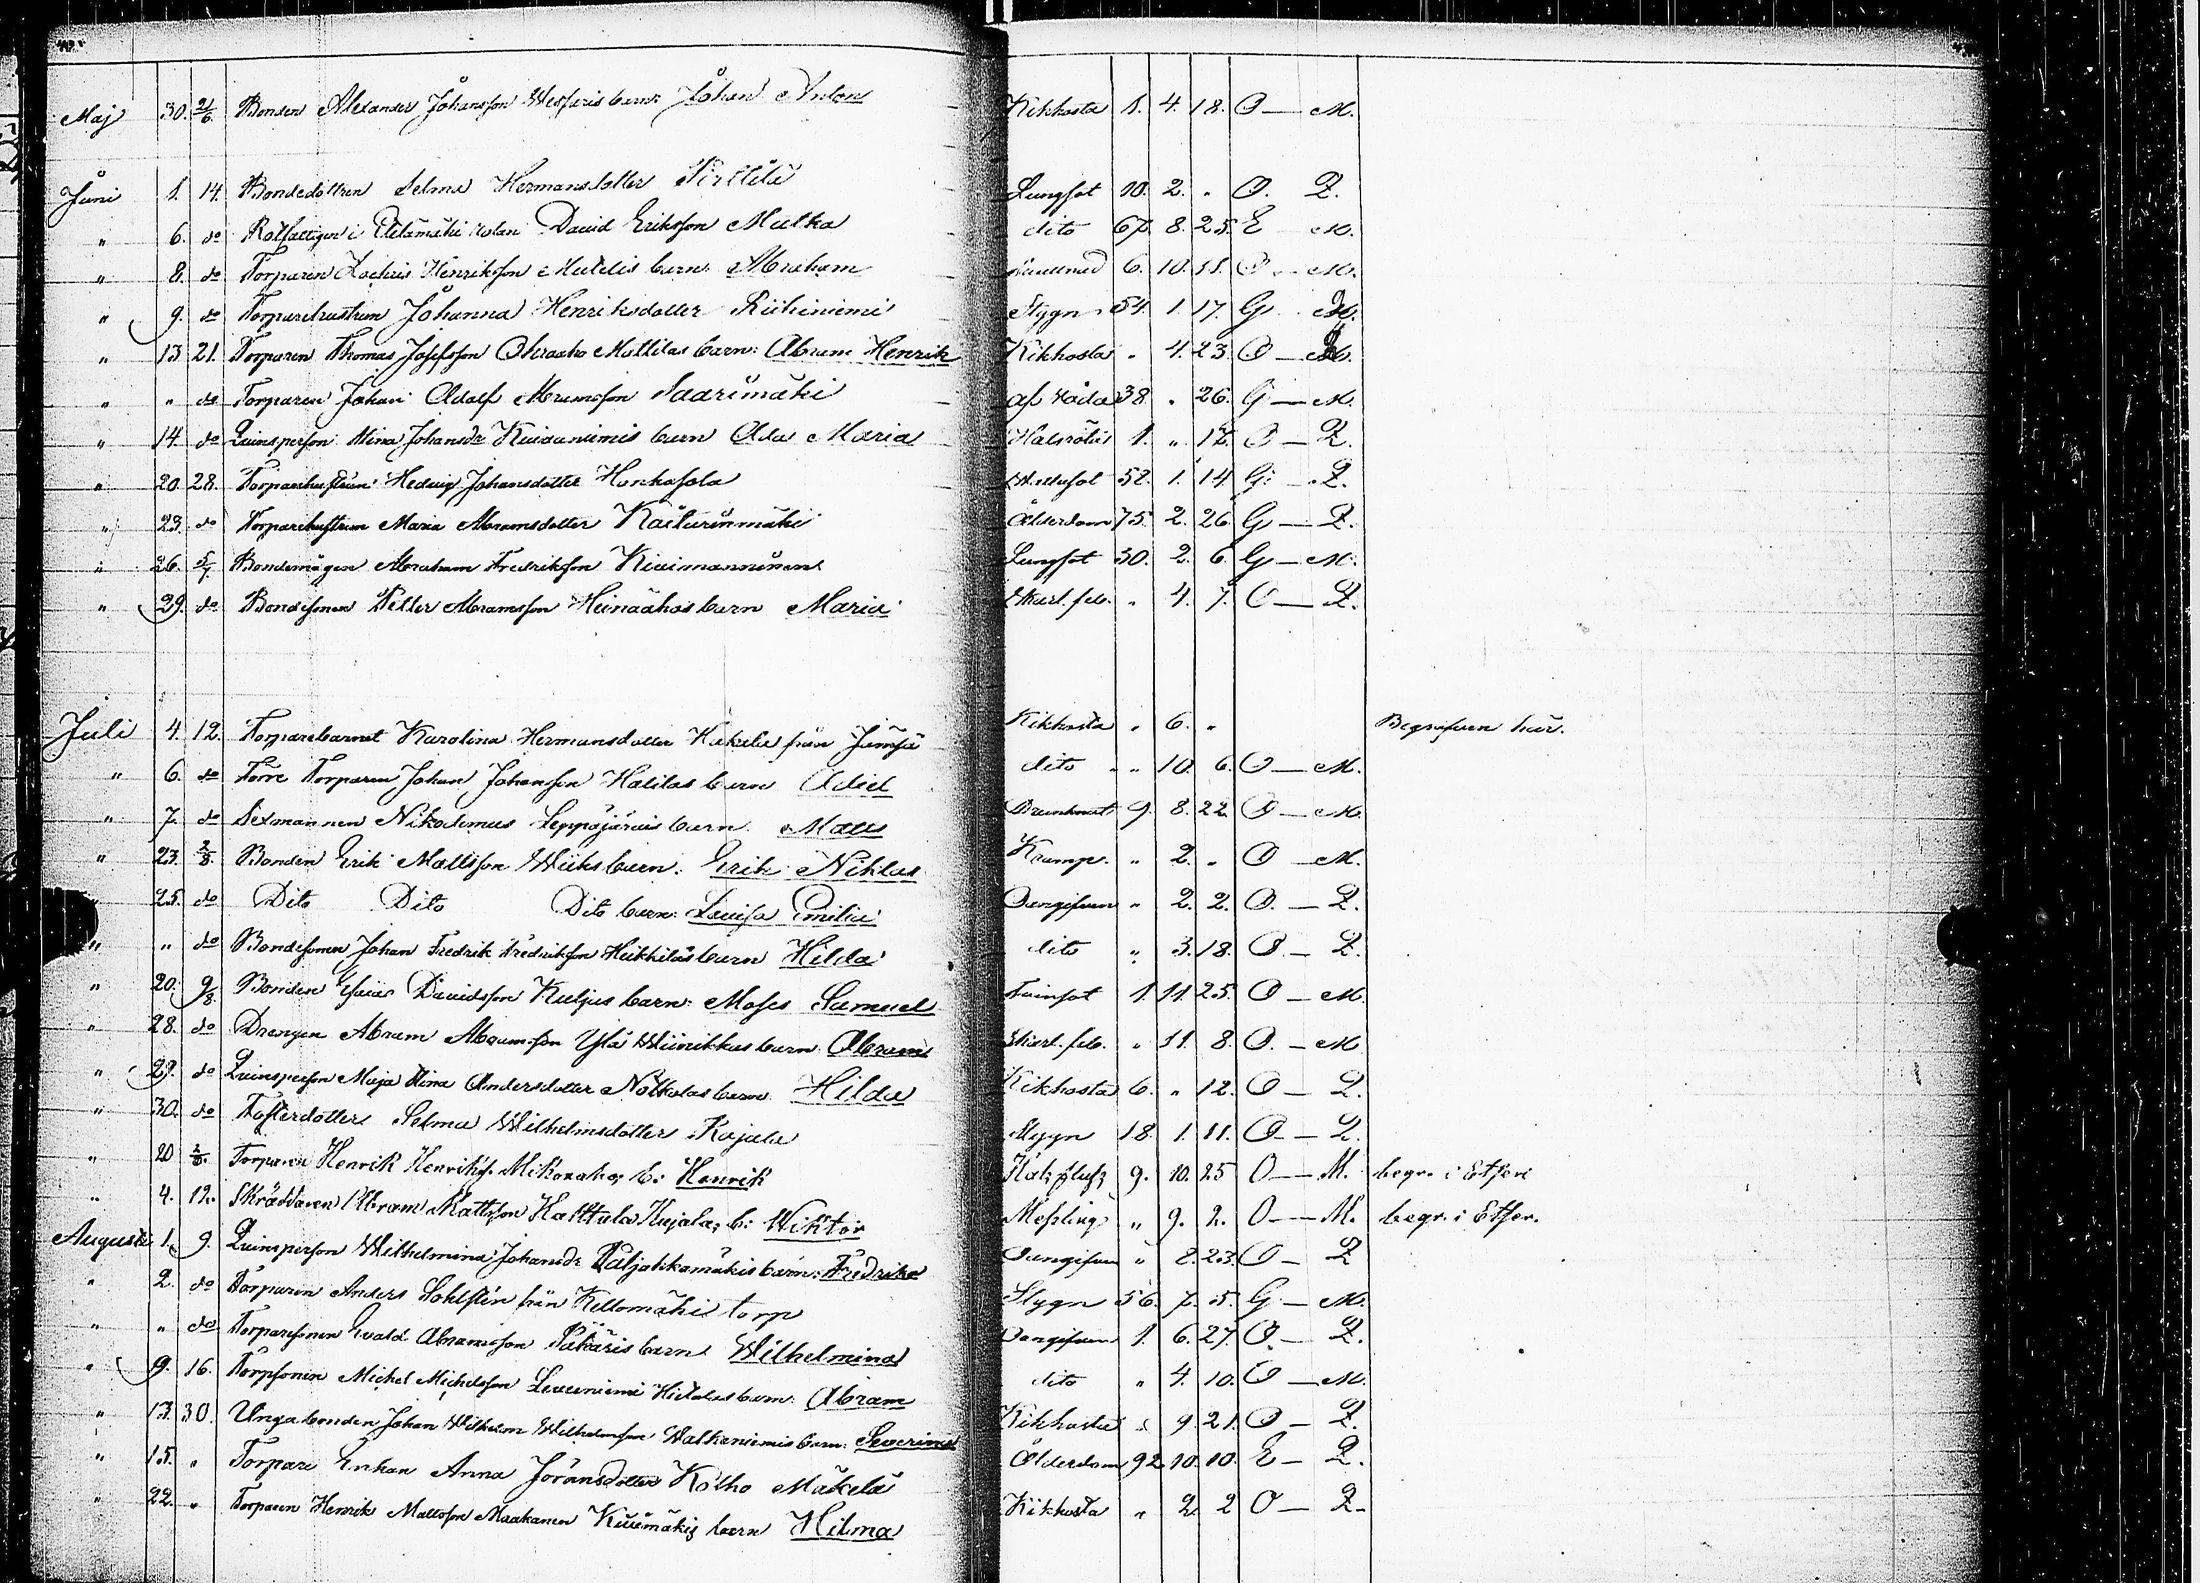 Maj 30. 21/6. Bonden Alexander Johansson Wesaris barn: Johan Anton Kikhosta 1. 4. 18. O — M.
Juni 1. 14. Bondedottren Selma Hermansdotter Pirttilä Lungsot 10. 2. " O. Q.
" 6. do Rotfattigen i Etelämäki rotan David Eriksson Mutka dito 67. 8. 25. E M.
" 8. do Torparen Zachris Henriksson barn: Abraham 6. 10. 11. O — M.
" 9. do Torparehustrun Johanna Henriksdotter Riihiniemi Stygn 54. 1. 17. G
" 13. 21. Torparen Thomas Josefsson Ohraaho Mattilas barn: Abram Henrik Kikhosta " 4. 23. O — M.
" " do Torparen Johan Adolf Abramsson Saarimäki af våda 38. " 26. G — M.
" 14. do Qvinsperson Stina Johansdr Kuivaniemis barn Ada Maria Halsröta 1. " 17. O — Q.
" 20. 28. Torparehustrun Hedvig Johansdotter Honkasola 52. 1. 14. G — Q.
" 23. do Torparehustrun Maria Abramsdotter Raiturinmäki Ålderdom 75. 2. 26. G — Q.
" 26. 5/7. Bondemågen Abraham Fredriksson Kivimanninen Lungsot 30. 2. 6. G — M.
" 29. do Bondesonen Petter Abramsson Heinäahos barn Maria Skarl. feb. " 4. 7. O — Q.
Juli 4. 12. Torparebarnet Karolina Hermansdotter Hakala från Jämsä Kikhosta " 6. " Begrafven här.
" 6. do Förre Torparen Johan Johansson Hatilas barn Adiel dito " 10. 6. O — M.
" 7. do Sexmannen Nikodemus Leppäjärvis barn: Matts 9. 8. 22. O — M.
" 23. 2/8. Bonden Erik Mattsson Wiiks barn: Erik Niklas Kramp. " 2. " O — M.
25. do Dito Dito Dito barn: Lovisa Emilia Oangifven " 2. 2. O. — Q.
" " do Bondesonen Johan Fredrik Fredriksson Heikkiläs barn Hilda dito " 3. 18. O. — Q.
" 20. 9/8. Bonden Esaias Davidsson Kuljus barn: Moses Samuel Tvinsot 1. 11. 25. O — M.
" 28. do Drengen Abram Abramsson Ylä Wiinikkas barn: Abram Skarl. feb. " 11. 8. O. — M
" 29. do Qvinsperson Maja Stina Andersdotter Notkolas barn: Hilda Kikhosta 6. " 12. O — Q.
" 30. do Fosterdotter Selma Wilhelmsdotter Rajala Stygn 18. 1. 11. O. — Q.
" 20 2/8. Torparen Henrik Henrikss. Mikonahos b: Henrik 9. 10. 25 O — M. begr. i Etseri
" 4. 12. Skräddaren Abram Mattsson Kalttula Kujalas b: Wiktor Messling " 9. 2. O — M. begr. i Etser.
Augusti 1. 9. Qvinsperson Wilhelmina Johansdr Paljakkamäkis barn: Fredrika Oangifven " 8. 23. O — Q
" 2. do Torparen Anders Sohlsten från Kellomäki torp Stygn 56. 7. 5. G — M.
" " do Torparesonen Evald Abramsson Pukäris barn Wilhelmina Oangifven 1. 6. 27. O. — Q.
" 9. 16. Torpsonen Michel Michelsson Levuniemi Hietalas barn: Abram dito " 4. 10. O — M.
" 13. 30. Unga bonden Johan Wilhelm Wilhelmsson Walkeniemis barn: Severina Kikhosta " 9. 21. O — Q.
" 15. " Torpare Enkan Anna Jöransdotter Kotho Mäkelä Ålderdom 92. 10. 10. E — Q.
" 22. " Torparen Henrik Mattsson Maakanen Kivimäkis barn Hilma Kikhosta " 2. 2 O — Q.